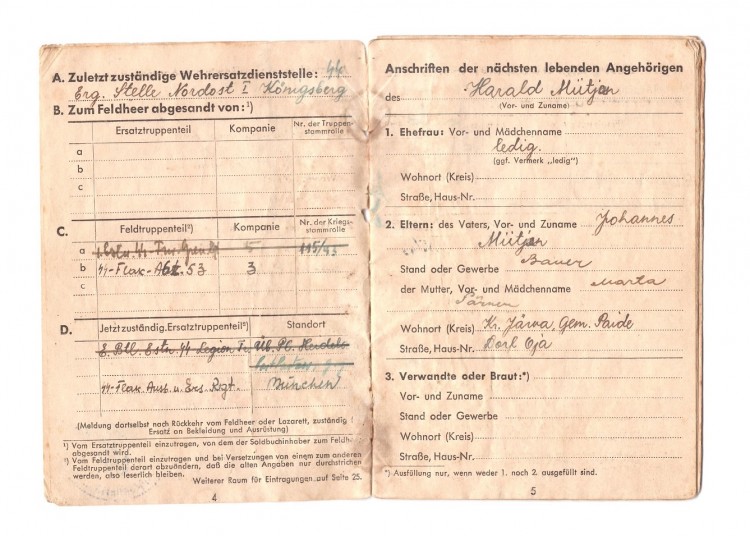 A. Zuletzt zuständige Wehrersatzdienststelle: 44
Erg. Stelle Nordost I Königsberg
B. Zum Feldheer abgesandt von:¹)
Ersatztruppenteil Kompanie Nr. der Truppen-
stammrolle
a
b
c
C. Feldtruppenteil²) Kompanie Nr. der Kriegs-
stammrolle
a
b 44-Flak-Abt. 53 3
c
D. Jetzt zuständig. Ersatztruppenteil²) Standort
E. Btl. Estn. 44 Legion
44-Flak Ausb. u. Ers. Rgt. München
(Meldung dortselbst nach Rückkehr vom Feldheer oder Lazarett, zuständig f
Ersatz an Bekleidung und Ausrüstung)
¹) Vom Ersatztruppenteil einzutragen, von dem der Soldbuchinhaber zum Feldh
abgesandt wird.
²) Vom Feldtruppenteil einzutragen und bei Versetzungen von einem zum anderen
Feldtruppenteil derart abzuändern, daß die alten Angaben nur durchstrichen
werden, also leserlich bleiben.
Weiterer Raum für Eintragungen auf Seite 25.
4
Anschriften der nächsten lebenden Angehörigen
des Harald Mütjen
(Vor- und Zuname)
1. Ehefrau: Vor- und Mädchenname
ledig.
(ggf. Vermerk „ledig")
Wohnort (Kreis)
Straße, Haus-Nr.
2. Eltern: des Vaters, Vor- und Zuname Johannes
Mütjen
Stand oder Gewerbe Bauer
der Mutter, Vor- und Mädchenname Marta
Särnen
Wohnort (Kreis) Kr. Järva, Gem. Paide
Straße, Haus-Nr. Dorf Oja
3. Verwandte oder Braut:*)
Vor- und Zuname
Stand oder Gewerbe
Wohnort (Kreis)
Straße, Haus-Nr.
*) Ausfüllung nur, wenn weder 1. noch 2. ausgefüllt sind.
5